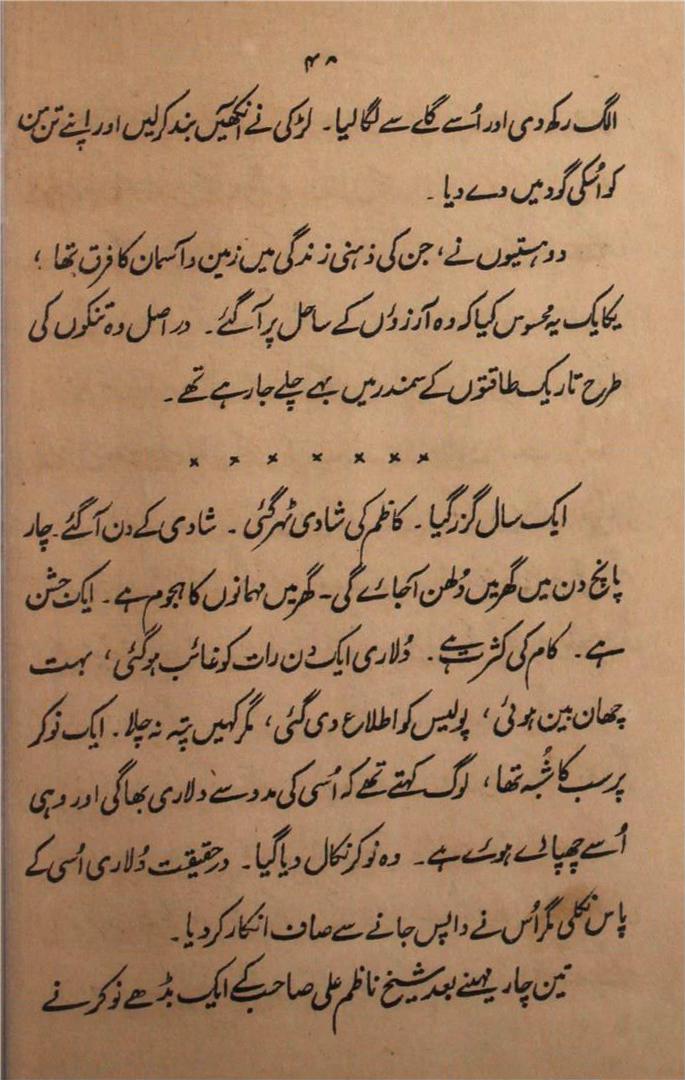 ۴۸
الگ رکھ دی اور اُسے گلے سے لگا لیا۔ لڑکی نے آنکھیں بند کر لیں اور اپنے تن من
کو اُسکی گود میں دے دیا۔
دو ہستیوں نے، جن کی ذہنی زندگی میں زمین و آسمان کا فرق تھا؛
یکایک یہ محسوس کیا کہ وہ آرزوؤں کے ساحل پر آ گئے۔ در اصل وہ تنکوں کی
طرح تاریک طاقتوں کے سمندر میں بہے چلے جا رہے تھے۔
× × × × × × ×
ایک سال گزر گیا۔ کاظم کی شادی ٹہر گئی۔ شادی کے دن آ گئے۔ چار
پانچ دن میں گھر میں دُلھن آجائے گی۔ گھر میں مہمانوں کا ہجوم ہے۔ ایک جشن
ہے۔ کام کی کثرت ہے۔ دُلاری ایک دن رات کو غائب ہو گئی، بہت
چھان بین ہوئی، پولیس کو اطلاع دی گئی، مگر کہیں پتہ نہ چلا۔ ایک نوکر
پر سب کا شُبہ تھا، لوگ کہتے تھے کہ اُسی کی مدد سے دلاری بھاگی اور وہی
اُسے چھپائے ہوئے ہے۔ وہ نوکر نکال دیا گیا۔ در حقیقت دُلاری اُسی کے
پاس نکلی مگر اُس نے واپس جانے سے صاف انکار کر دیا۔
تین چار مہینے بعد شیخ ناظم علی صاحب کے ایک بڈھے نوکر نے